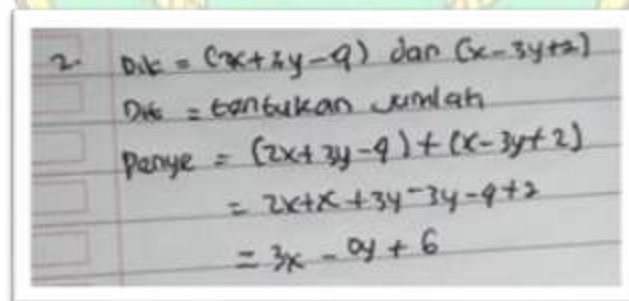 2. Dik = (2x+3y-9) dan (x-3y+2)
Dit = tentukan jumlah
Penye = (2x+3y-9)+(x-3y+2)
= 2x+x+3y-3y-9+2
= 3x - 0y + 6